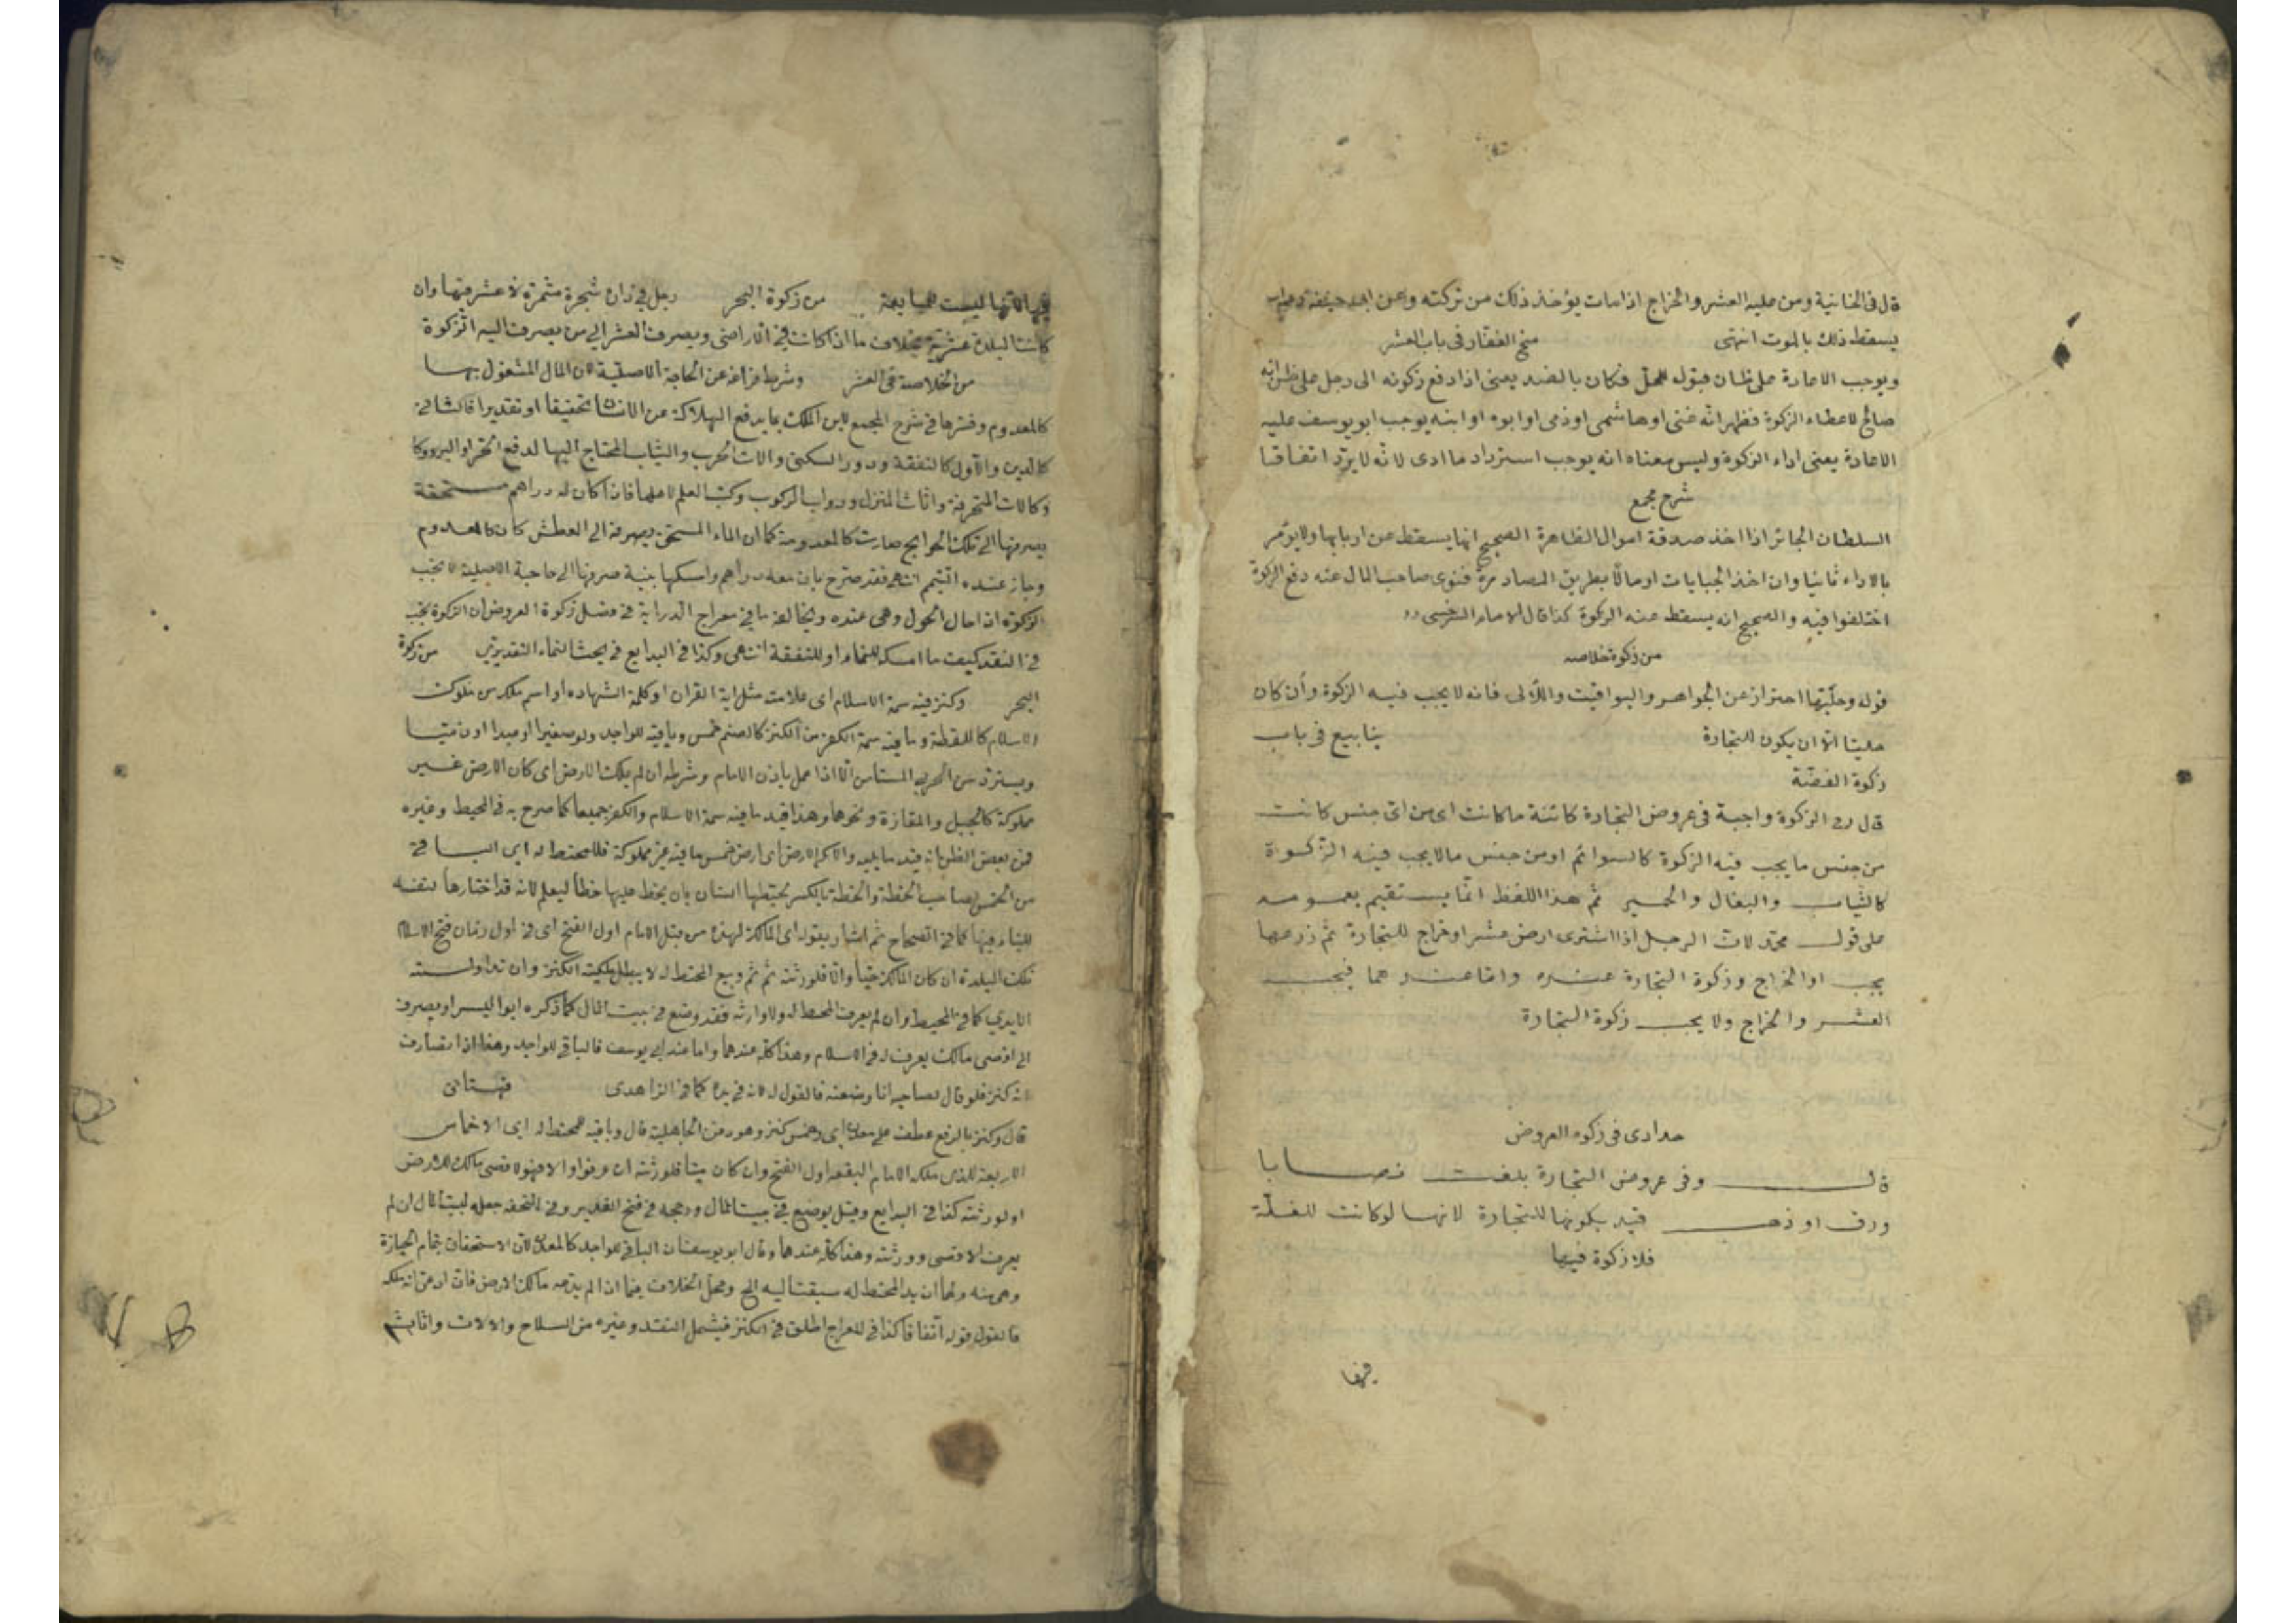 قال فى الخانية ومن عليه العشر والخراج اذا مات يؤخذ ذلك من تركته وعن ابى حنيفة
يسقط ذلك بالموت انتهى منح الغفار فى باب العشر
ويوجب الاعادة على ظان قبول المحل فكان بالضد يعنى اذا دفع زكوته الى رجل على ظن انه
صالح لاعطاء الزكوة فظهر انه غنى اوهاشمى اوذمى اوابوه اوابنه يوجب ابويوسف عليه
الاعادة يعنى اداء الزكوة وليس معناه انه يوجب استرداد ما ادى لانه لا يرد اتفاقا
شرح مجمع
السلطان الجائر اذا اخذ صدقة اموال الظاهرة الصحيح انها يسقط عن اربابها ولا يؤمر
بالاداء ثانيا وان اخذ الجبايات اومالا بطريق المصادرة فنوى صاحب المال عنه دفع الزكوة
اختلفوا فيه والصحيح انه يسقط عنه الزكوة كذا قال الامام السرخسى
من زكوة خلاصه
قوله وحليتها احتراز عن الجواهر واليواقيت واللآلى فانه لا يجب فيه الزكوة وان كان
حليتا الا ان يكون للتجارة ينابيع فى باب
زكوة الفضة
قال رح الزكوة واجبة فى عروض التجارة كائنة ما كانت اى من اى جنس كانت
من جنس ما يجب فيه الزكوة كالسوائم اومن جنس مالا يجب فيه الزكوة
كالثياب والبغال والحمير ثم هذا اللفظ انما يستقيم بعمومه
على قول محمد لان الرجل اذا اشترى ارض عشر اوخراج للتجارة ثم زرعها
يجب اوالخراج وزكوة التجارة عنده واما عندهما فيجب
العشر والخراج ولا يجب زكوة التجارة
حدادى فى زكوه العروض
قال وفى عروض التجارة بلغت نصابا
ورق او ذهب قيد بكونها للتجارة لانها لوكانت للغلة
فلا زكوة فيها
فيها
فيها لانها ليست للمبايعة من زكوة البحر رجل فى داره شجرة مثمرة لا عشر فيها وان
كانت البلدة عشرية بخلاف ما اذا كانت فى الاراضى ويصرف العشر الى من يصرف اليه الزكوة
من الخلاصة فى العشر وشرط فراغه عن الحاجة الاصلية لان المال المشغول بها
كالمعدوم وفسرها فى شرح المجمع لابن الملك بما يدفع الهلاك عن الانسان تحقيقا او تقديرا فالثانى
كالدين والاول كالنفقة ودور السكنى والات الحرب والثياب المحتاج اليها لدفع الحر او البرد وكا
وكالات الحرفة واثاث المنزل ودواب الركوب وكتب العلم لاهلها فاذا كان له دراهم مستحقة
يصرفها الى تلك الحوايج صارت كالمعدومة كما ان الماء المستحق بصرفه الى العطش كان كالمعدوم
وجاز عنده التيمم انتهى فقد صرح بان من معه دراهم وامسكها بنية صرفها الى حاجة الاصلية لا تجب
الزكوة اذا حال الحول وهى عنده ويخالفه ما فى معراج الدراية فى فصل زكوة العروض ان الزكوة تجب
فى النقد كيف ما امسكه للنماء او للنفقة انتهى وكذا فى البدايع فى بحث النماء التقديرى من زكوة
البحر وكنز فيه سمة الاسلام اى علامته مثل اية القران او كلمة الشهاده او اسم ملك من ملوك
الاسلام كاللقطة وما فيه سمة الكفر من الكنز كالصنم خمس وباقيه للواجد ولو صغيرا او عبدا او ذميا
ويسترد من الحربى المستامن الا اذا عمل باذن الامام وشرطه ان لم يملك الارض اى كان الارض غير
مملوكة كالجبل والمفازة ونحوهما وهذا قيد ما فيه سمة الاسلام والكفر جميعا كما صرح به فى المحيط وغيره
فمن بعض الظن انه قيد ما يليه والا اى الارض اى ارض خمس ما فيه غير مملوكة فللمختط له اى الباقى
من الخمس لصاحب الخطة والخطة بالكسر يختطها انسان بان يخط عليها خطا ليعلم انه قد اختارها لنفسه
للبناء فيها كما فى الصحاح ثم اشار بقوله اى المالك لهذه من قبل الامام اول الفتح اى فى اول زمان فتح الاسلام
تلك البلدة ان كان المالك حيا والا فلورثته ثم ثم وبيع المختط له لا يبطل ملكية الكنز وان تداولته
الايدى كما فى المحيط وان لم يعرف المختط له ولا وارثه فقد وضع فى بيت المال كما ذكره ابو اليسر او يصرف
الى اقصى مالك يعرف له فى الاسلام وهذا كله عندهما واما عند ابى يوسف فالباقى للواجد وهذا اذا تصادقت
انه كنز فلو قال لصاحبه انا وضعته فالقول له لانه فى يده كما فى الزاهدى قهستانى
قال وكنز بالرفع عطف على معدن اى وخمس كنز وهو دفن الجاهلية قال وباقيه للمختط له اى الاخماس
الاربعة للذى ملكه الامام البقعه اول الفتح وان كان ميتا فلورثته ان عرفوا والا فهو لاقصى مالك للارض
اولورثته كذا فى البدايع وقيل يوضع فى بيت المال ورجحه فى فتح القدير وفى التحفه جعله لبيت المال ان لم
يعرف الاقصى وورثته وهذا كله عندهما وقال ابويوسف ان الباقى للواجد كالمعدن لان الاستحقاق بتمام الحيازة
وهى منه ولهما ان يد المختط له سبقت اليه الخ ومحل الخلاف فيما اذا لم يدعه مالك الارض فان ادعى انه ملكه
فالقول قوله اتفاقا كذا فى المعراج اطلق فى الكنز فيشمل النقد وغيره من السلاح والالات واثاث